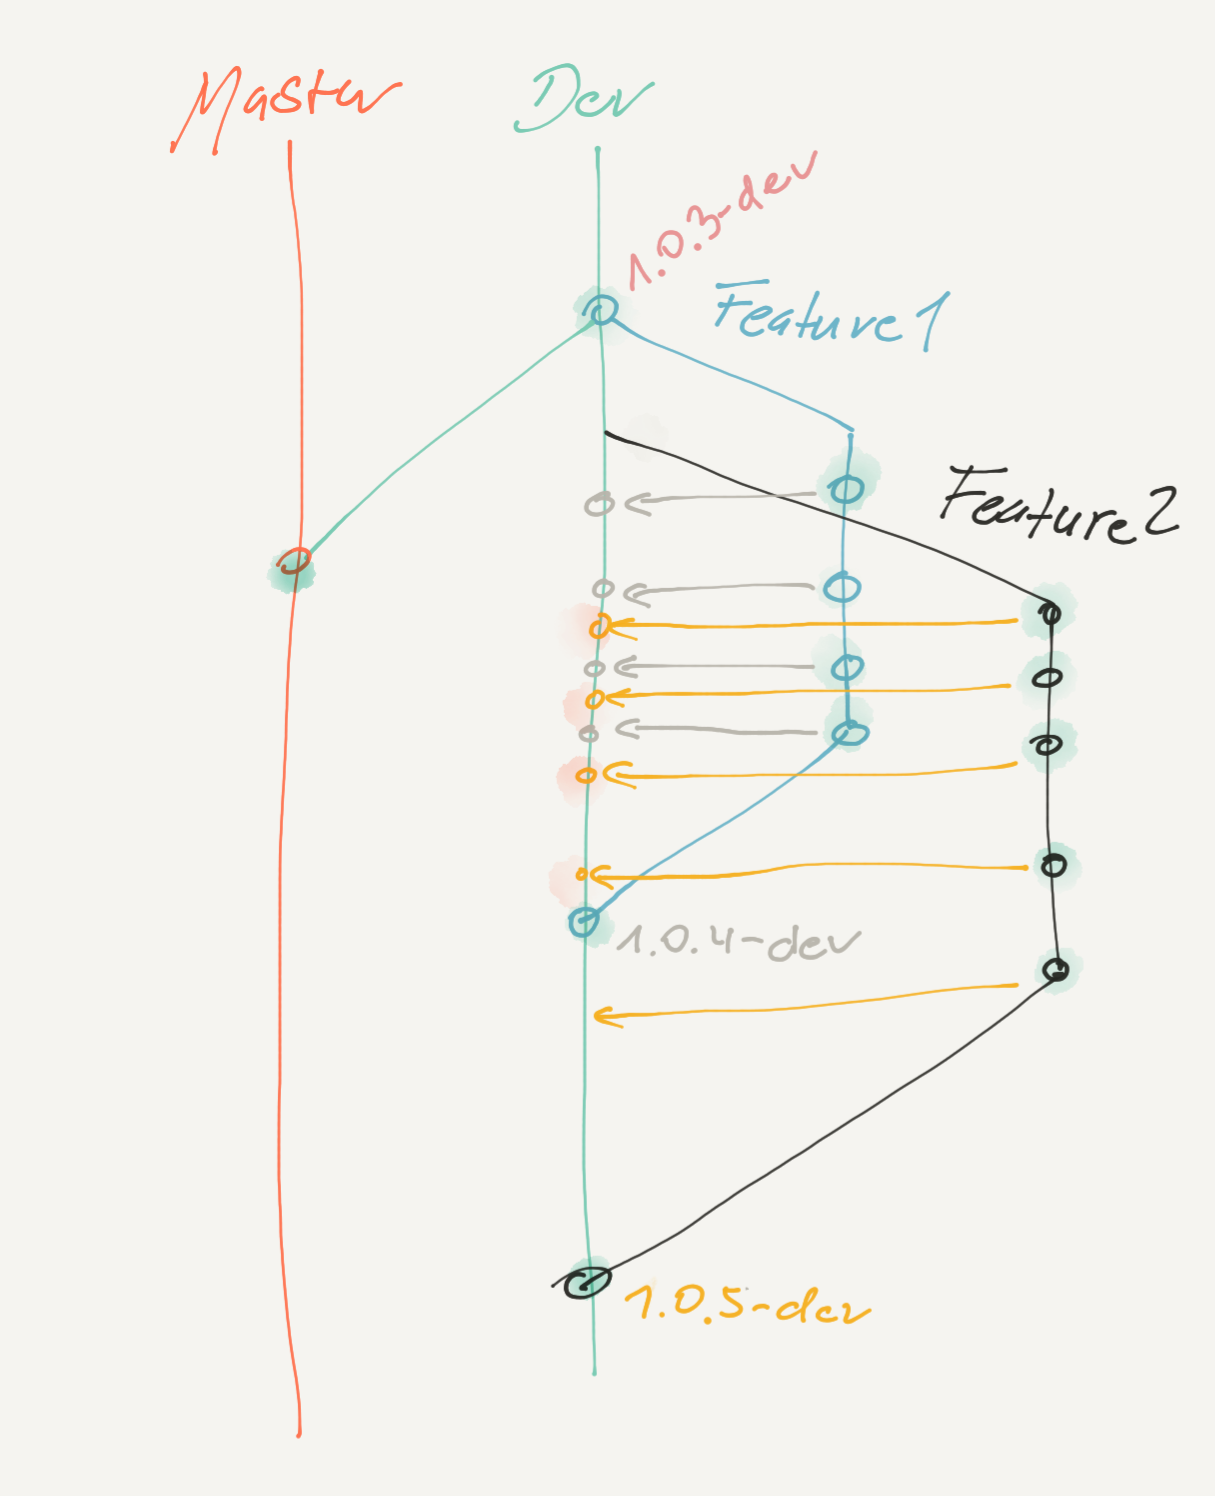 Master
Dev
1.0.3-dev
Feature1
Feature2
1.0.4-dev
1.0.5-dev